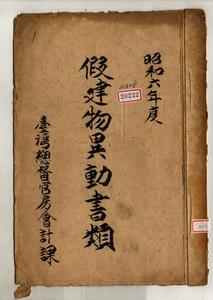 昭和六年度
假建物異動書類
20222
臺灣總督官房會計課